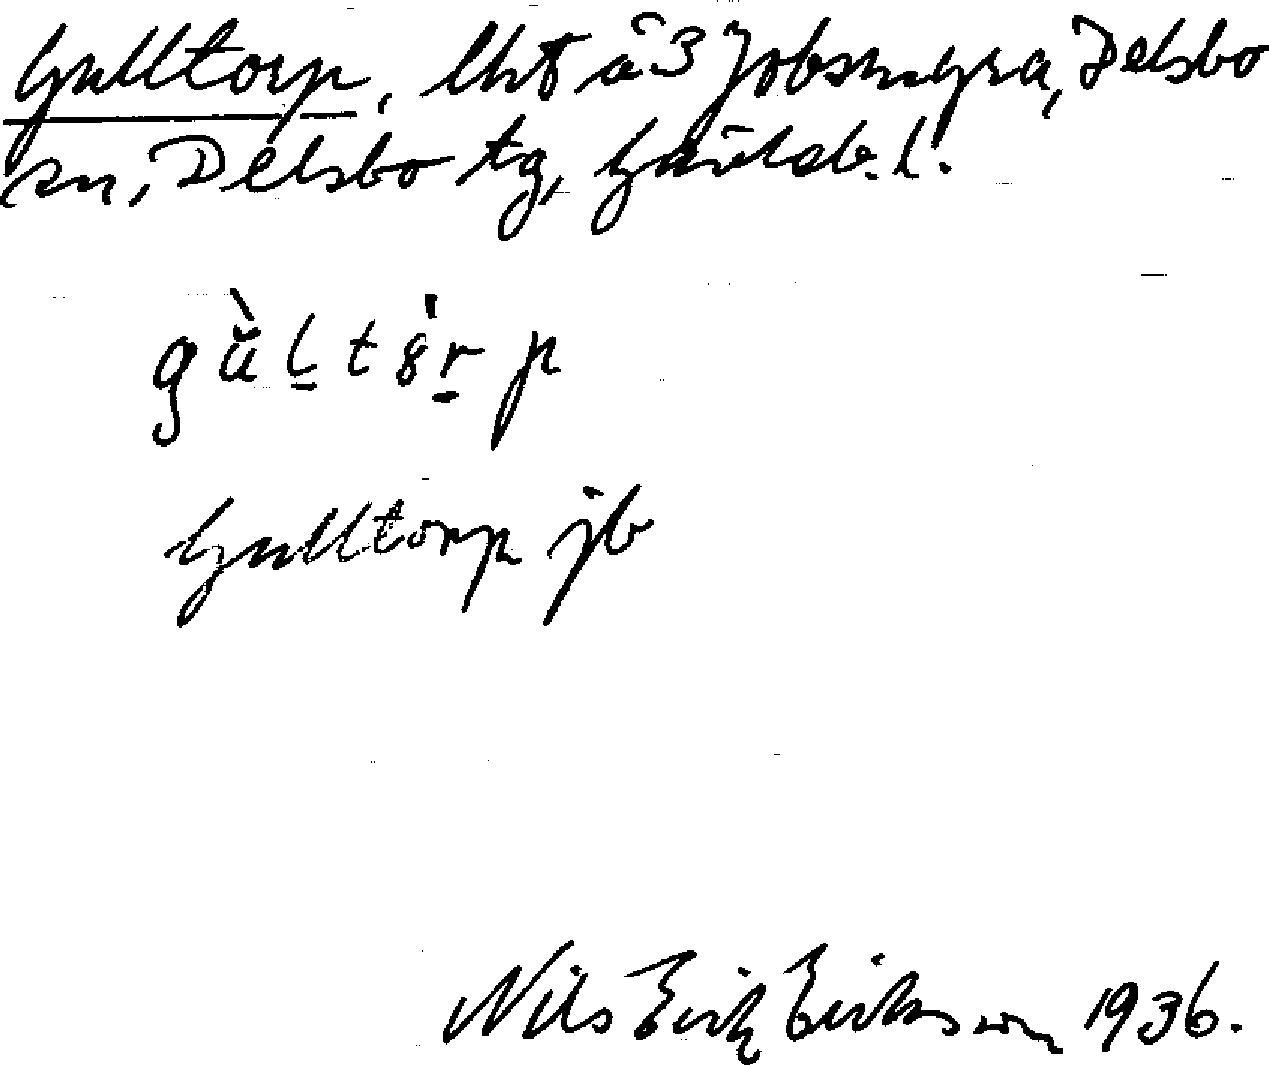 Gulltorp, lht å 3 Jobsmyra, Delsbo
sn, Delsbo tg, Gävleb. l.
gu̇̀l̠tȣ̍r̠p
Gulltorp jb
Nils Erik Eriksson 1936.